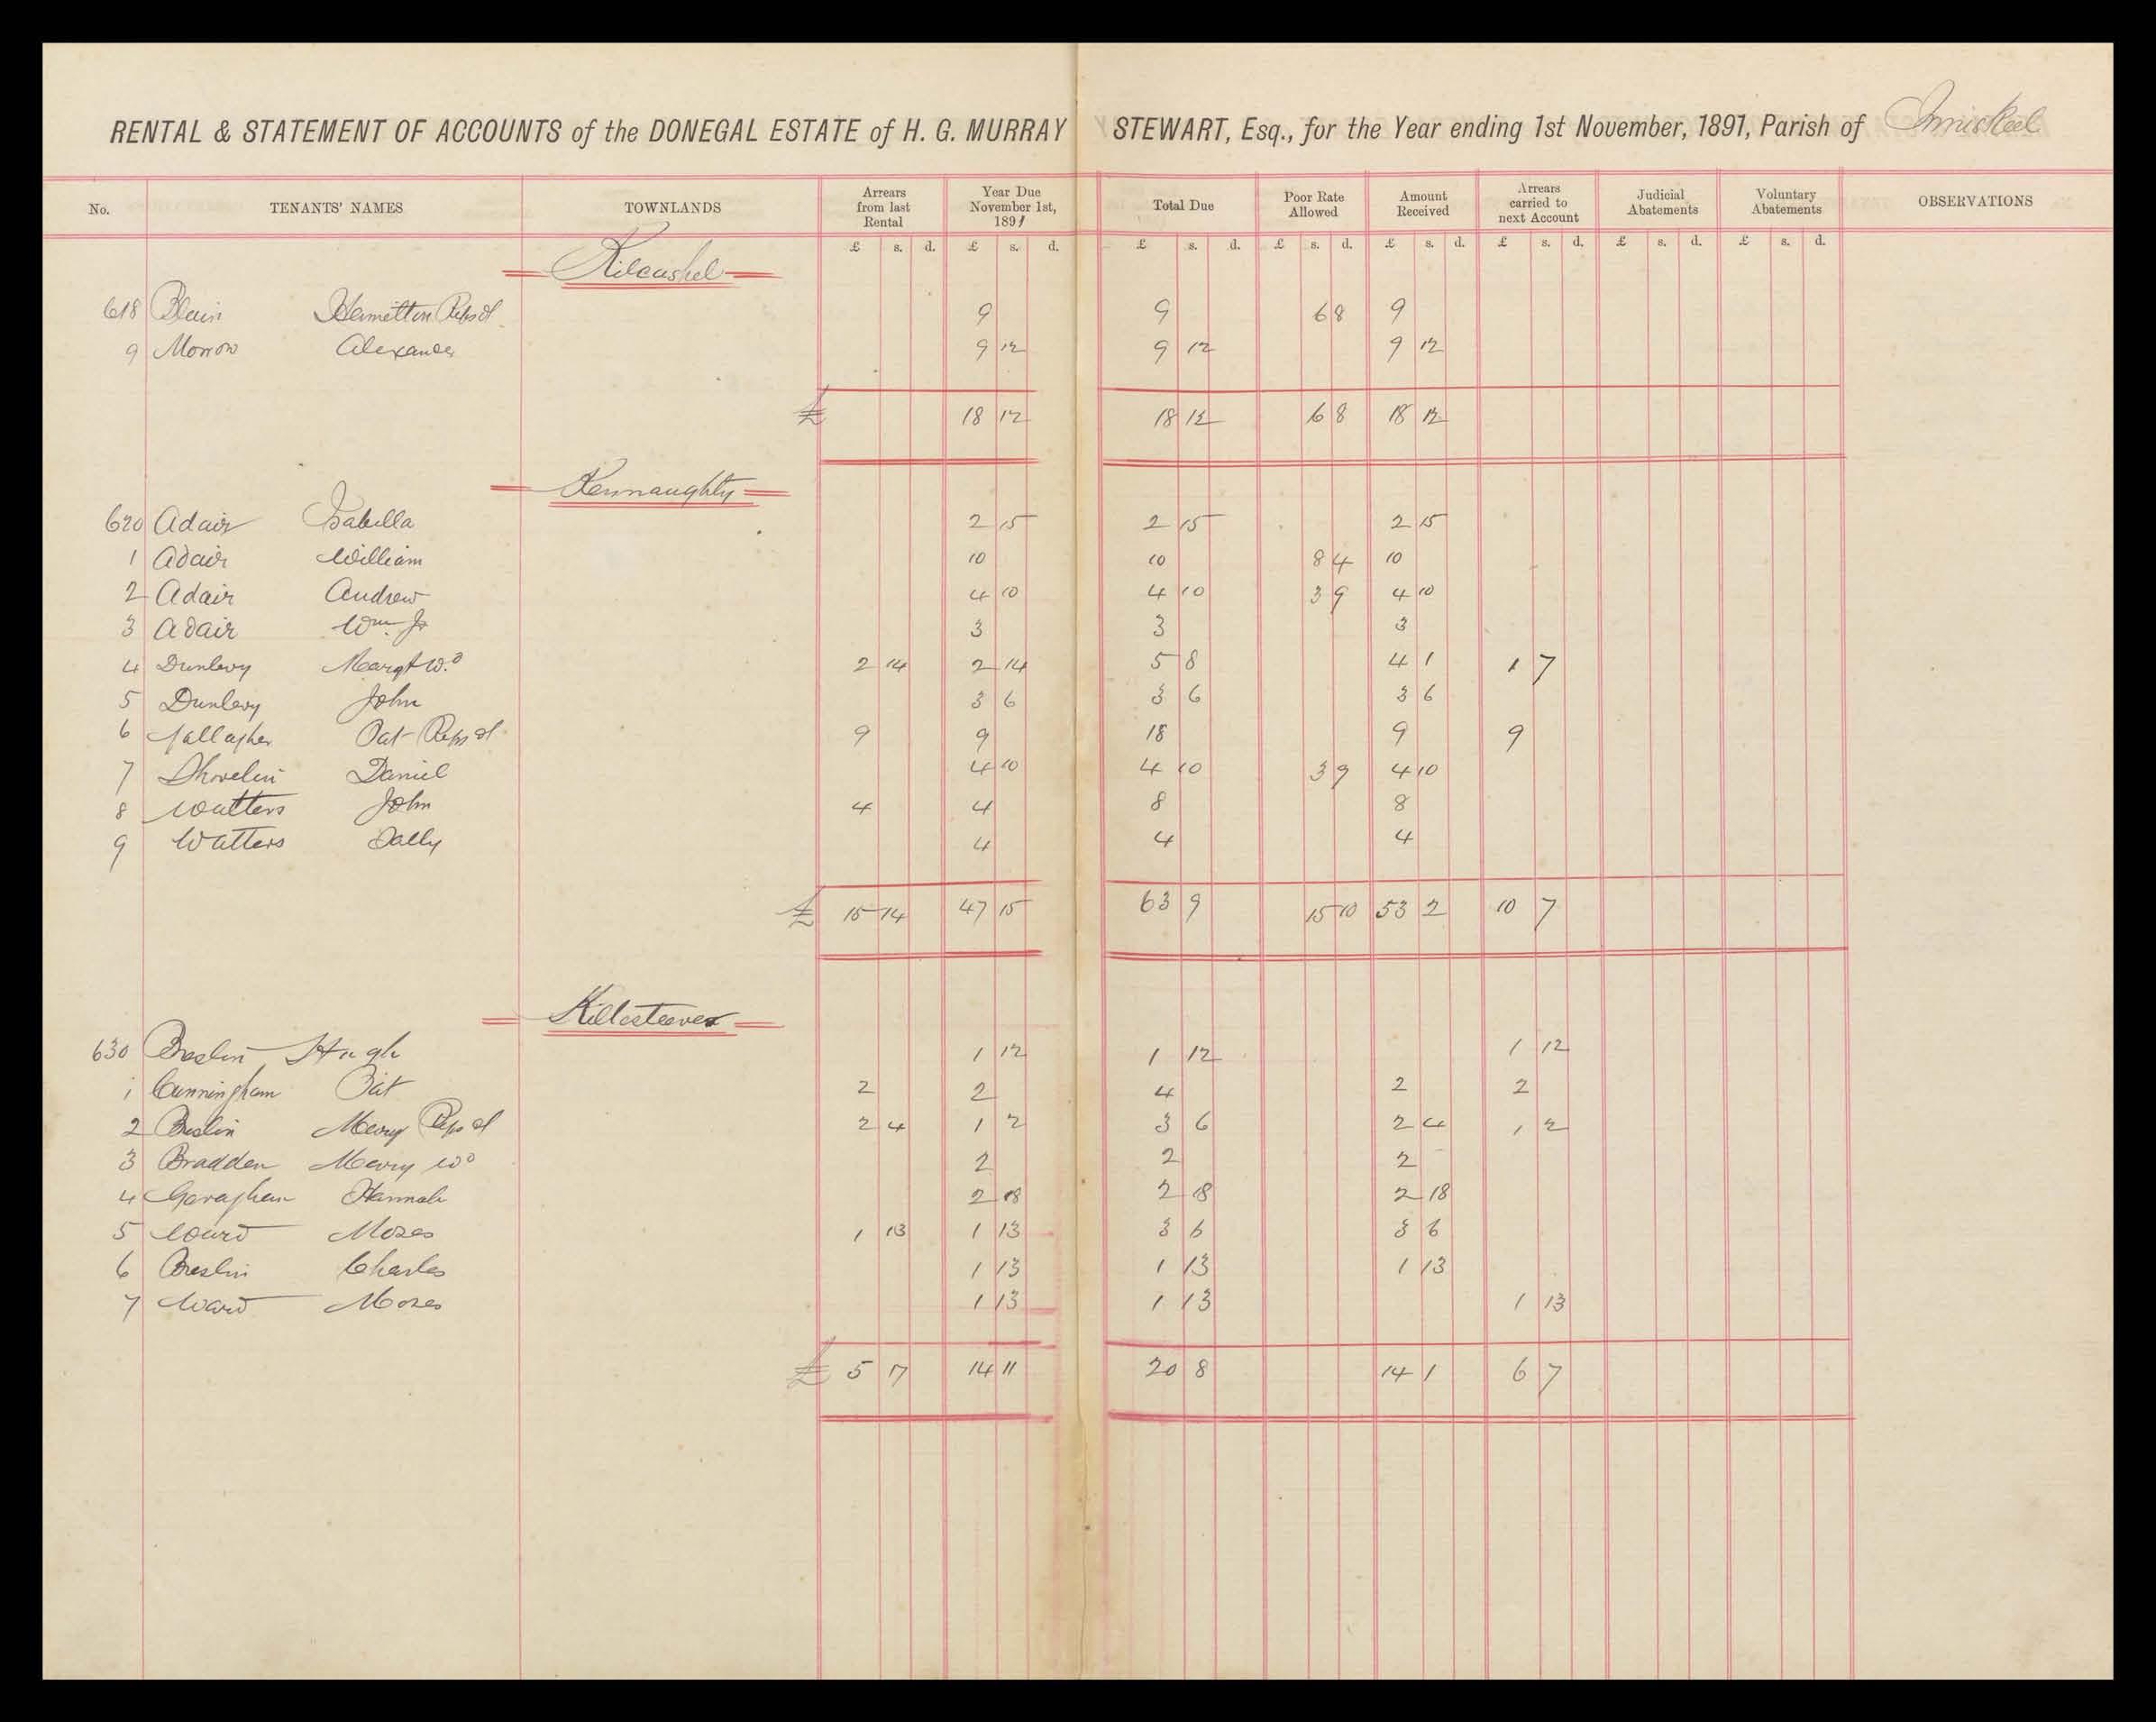 RENTAL & STATEMENT OF ACCOUNTS of the DONEGAL ESTATE of H. G. MURRAY STEWART, Esq., for the Year ending 1st November, 1891, Parish of Inniskeel
No. TENANTS' NAMES TOWNLANDS Arrears from last Rental Year Due November 1st, 1891 Total Due Poor Rate Allowed Amount Received Arrears carried to next Account Judicial Abatements Voluntary Abatements OBSERVATIONS
£ s. d. £ s. d. £ s. d. £ s. d. £ s. d. £ s. d. £ s. d. £ s. d.
Kilcashel
618 Blain Hamilton Reps of 9 9 6 8 9
9 Morrow Alexander 9 12 9 12 9 12
£ 18 12 18 12 6 8 18 12
Kennaughty
620 Adair Isabella 2 15 2 15 2 15
1 Adair William 10 10 8 4 10
2 Adair Andrew 4 10 4 10 3 9 4 10
3 Adair Wm Jr 3 3 3
4 Dunlevy Margt Wo 2 14 2 14 5 8 4 1 1 7
5 Dunlevy John 3 6 3 6 3 6
6 Gallagher Pat Reps of 9 9 18 9 9
7 Shovelin Daniel 4 10 4 10 3 9 4 10
8 Watters John 4 4 8 8
9 Watters Sally 4 4 4
£ 15 14 47 15 63 9 15 10 53 2 10 7
Killasteever
630 Breslin Hugh 1 12 1 12 1 12
1 Cunningham Pat 2 2 4 2 2
2 Breslin Mary Reps of 2 4 1 2 3 6 2 4 1 2
3 Bradden Mary Wo 2 2 2
4 Garaghan Hannah 2 18 2 18 2 18
5 Ward Moses 1 13 1 13 3 6 3 6
6 Breslin Charles 1 13 1 13 1 13
7 Ward Moses 1 13 1 13 1 13
£ 5 17 14 11 20 8 14 1 6 7